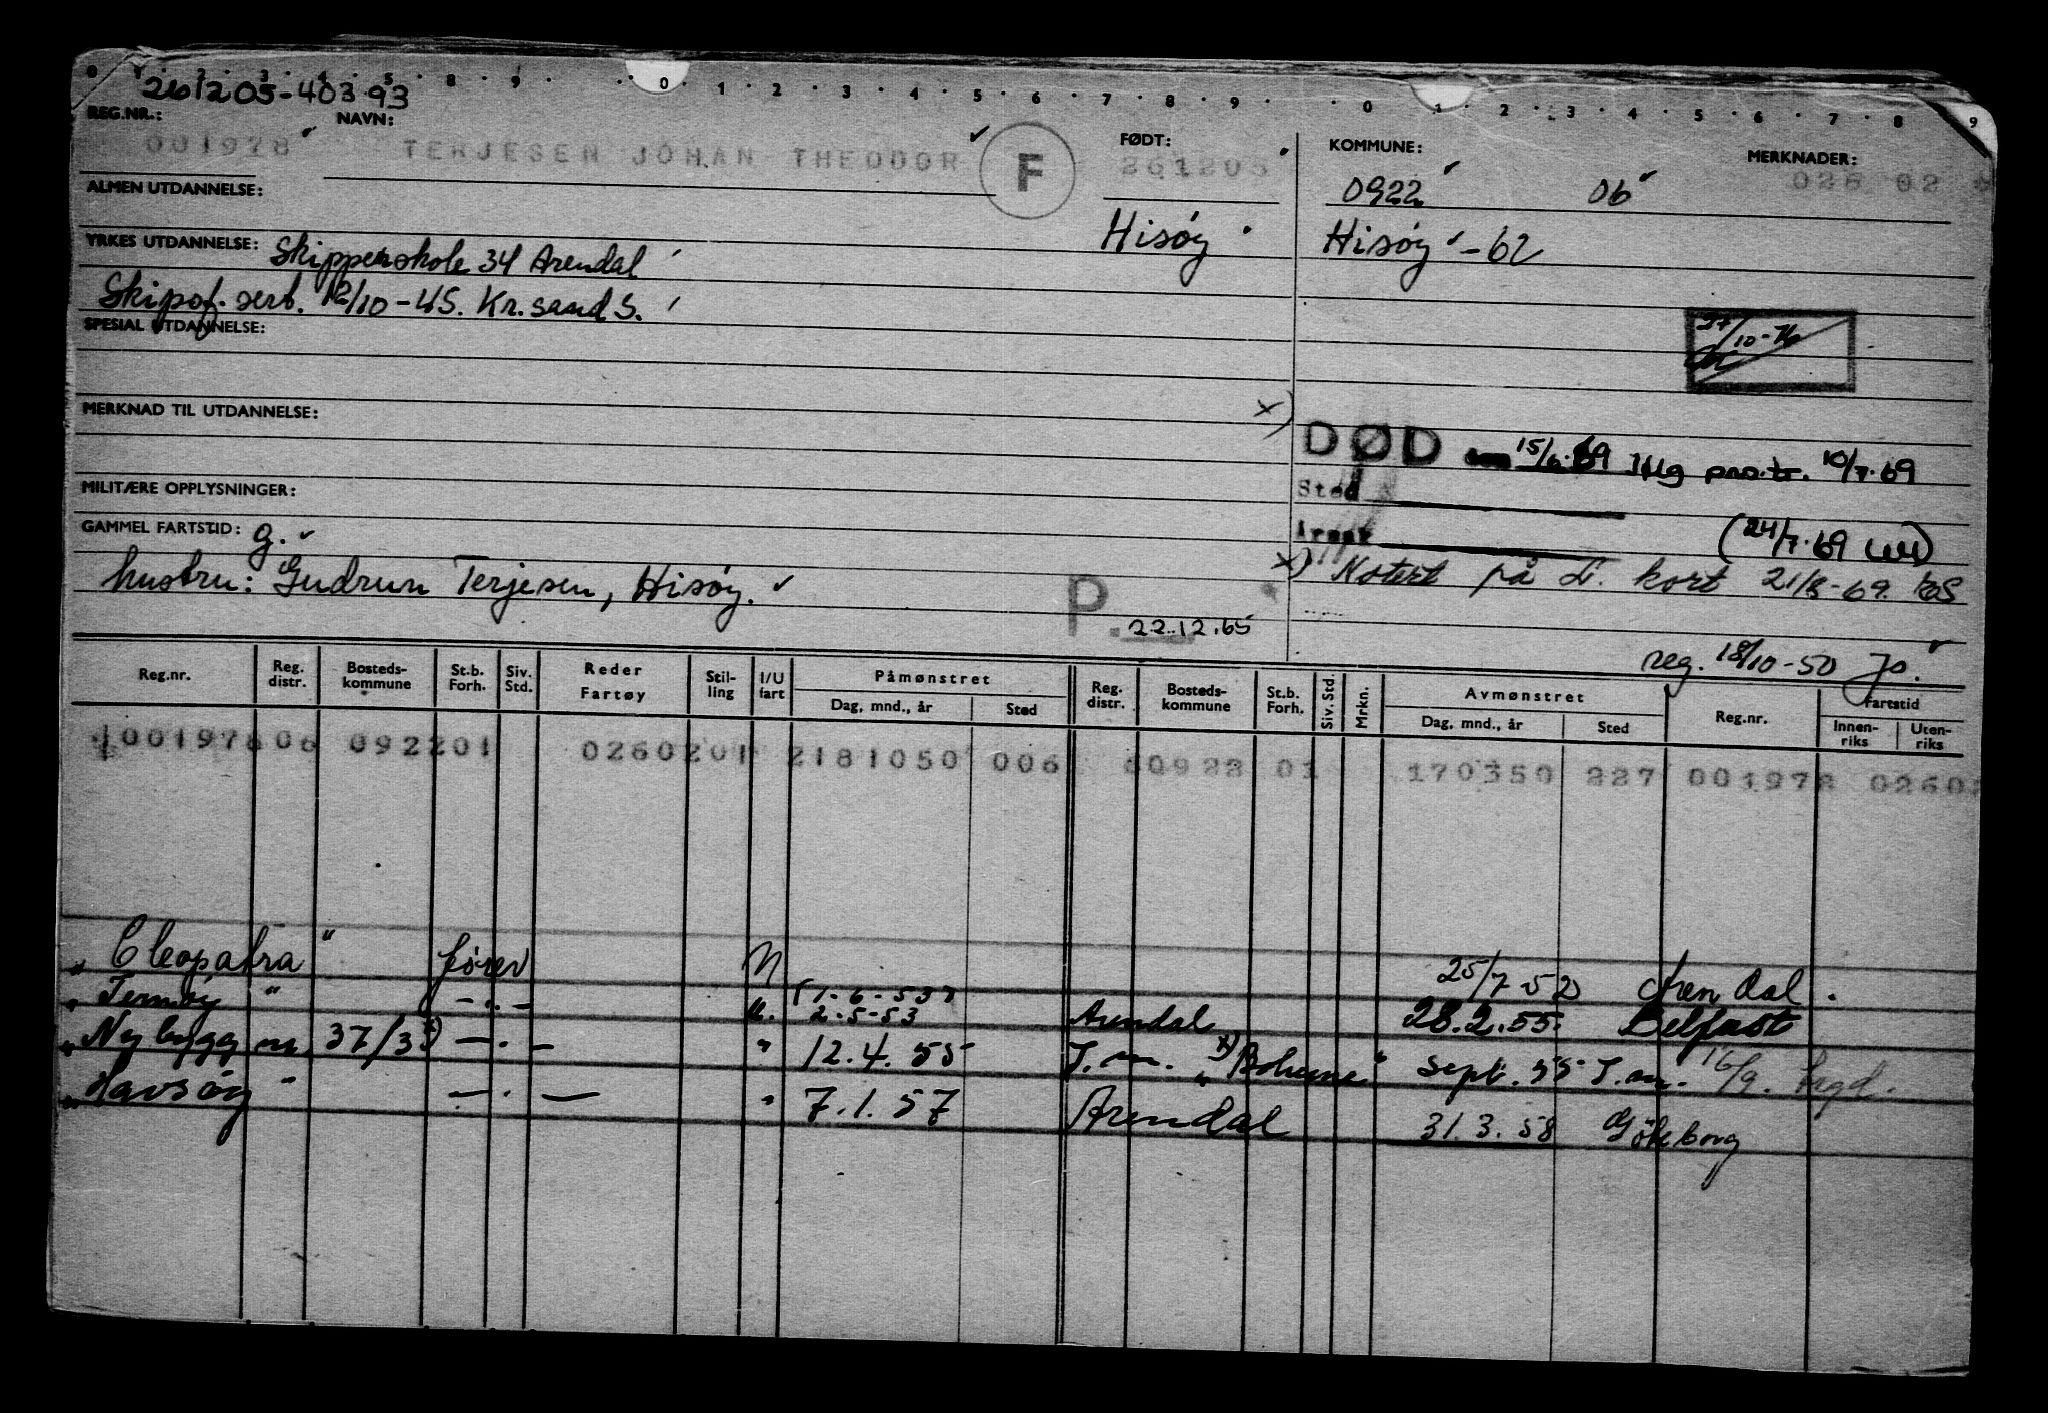 0 1 2 3 4 5 8 9 0 1 2 3 4 5 6 7 8 9 0 1 2 3 4 5 6 7 8 9
261205-403.93
REG.NR.: NAVN: FØDT: KOMMUNE: MERKNADER:
001978 TERJESEN JOHAN THEODOR F 261205 0922 06 026 02
ALMEN UTDANNELSE:
Hisøy Hisøy -62
YRKES UTDANNELSE: Skipperskole 34 Arendal
Skipsf. sert. 12/10-45. Kr.sand S.
SPESIAL UTDANNELSE:
27/10-76
MERKNAD TIL UTDANNELSE:
x)
DØD 15/6.69 Mlg pro.tr. 10/7.69
MILITÆRE OPPLYSNINGER:
Sted
GAMMEL FARTSTID: g.
Årsak (24/7.69
hustru: Gudrun Terjesen, Hisøy.
x) Notert på kort 21/8-69.
P. 22.12.65
reg. 18/10-50 Jo.
Reg.nr. Reg. distr. Bosteds-kommune St.b. Forh. Siv. Std. Reder Fartøy Stil-ling I/U fart Påmønstret Dag, mnd., år Sted Reg. distr. Bosteds-kommune St.b. Forh. Siv. Std. Mrkn. Avmønstret Dag, mnd., år Sted Reg.nr. Fartstid Innen-riks Uten-riks
00197806 092201 0260201 2181050 006 0922 01 170350 227 001978 0260
" Cleopatra " fører U 25/7 52 Arendal.
" Ternøy " -.- u. (1-6-53) 2-5-53 Arendal 28.2.55. Belfast
" Nybygg nr. 37/3 x) -.- " 12.4.55 T.m. x) "Boheme" Sept. 55 T.m. 16/9.
" Havsøy " -.- " 7.1.57 Arendal 31.3.58 Göteborg